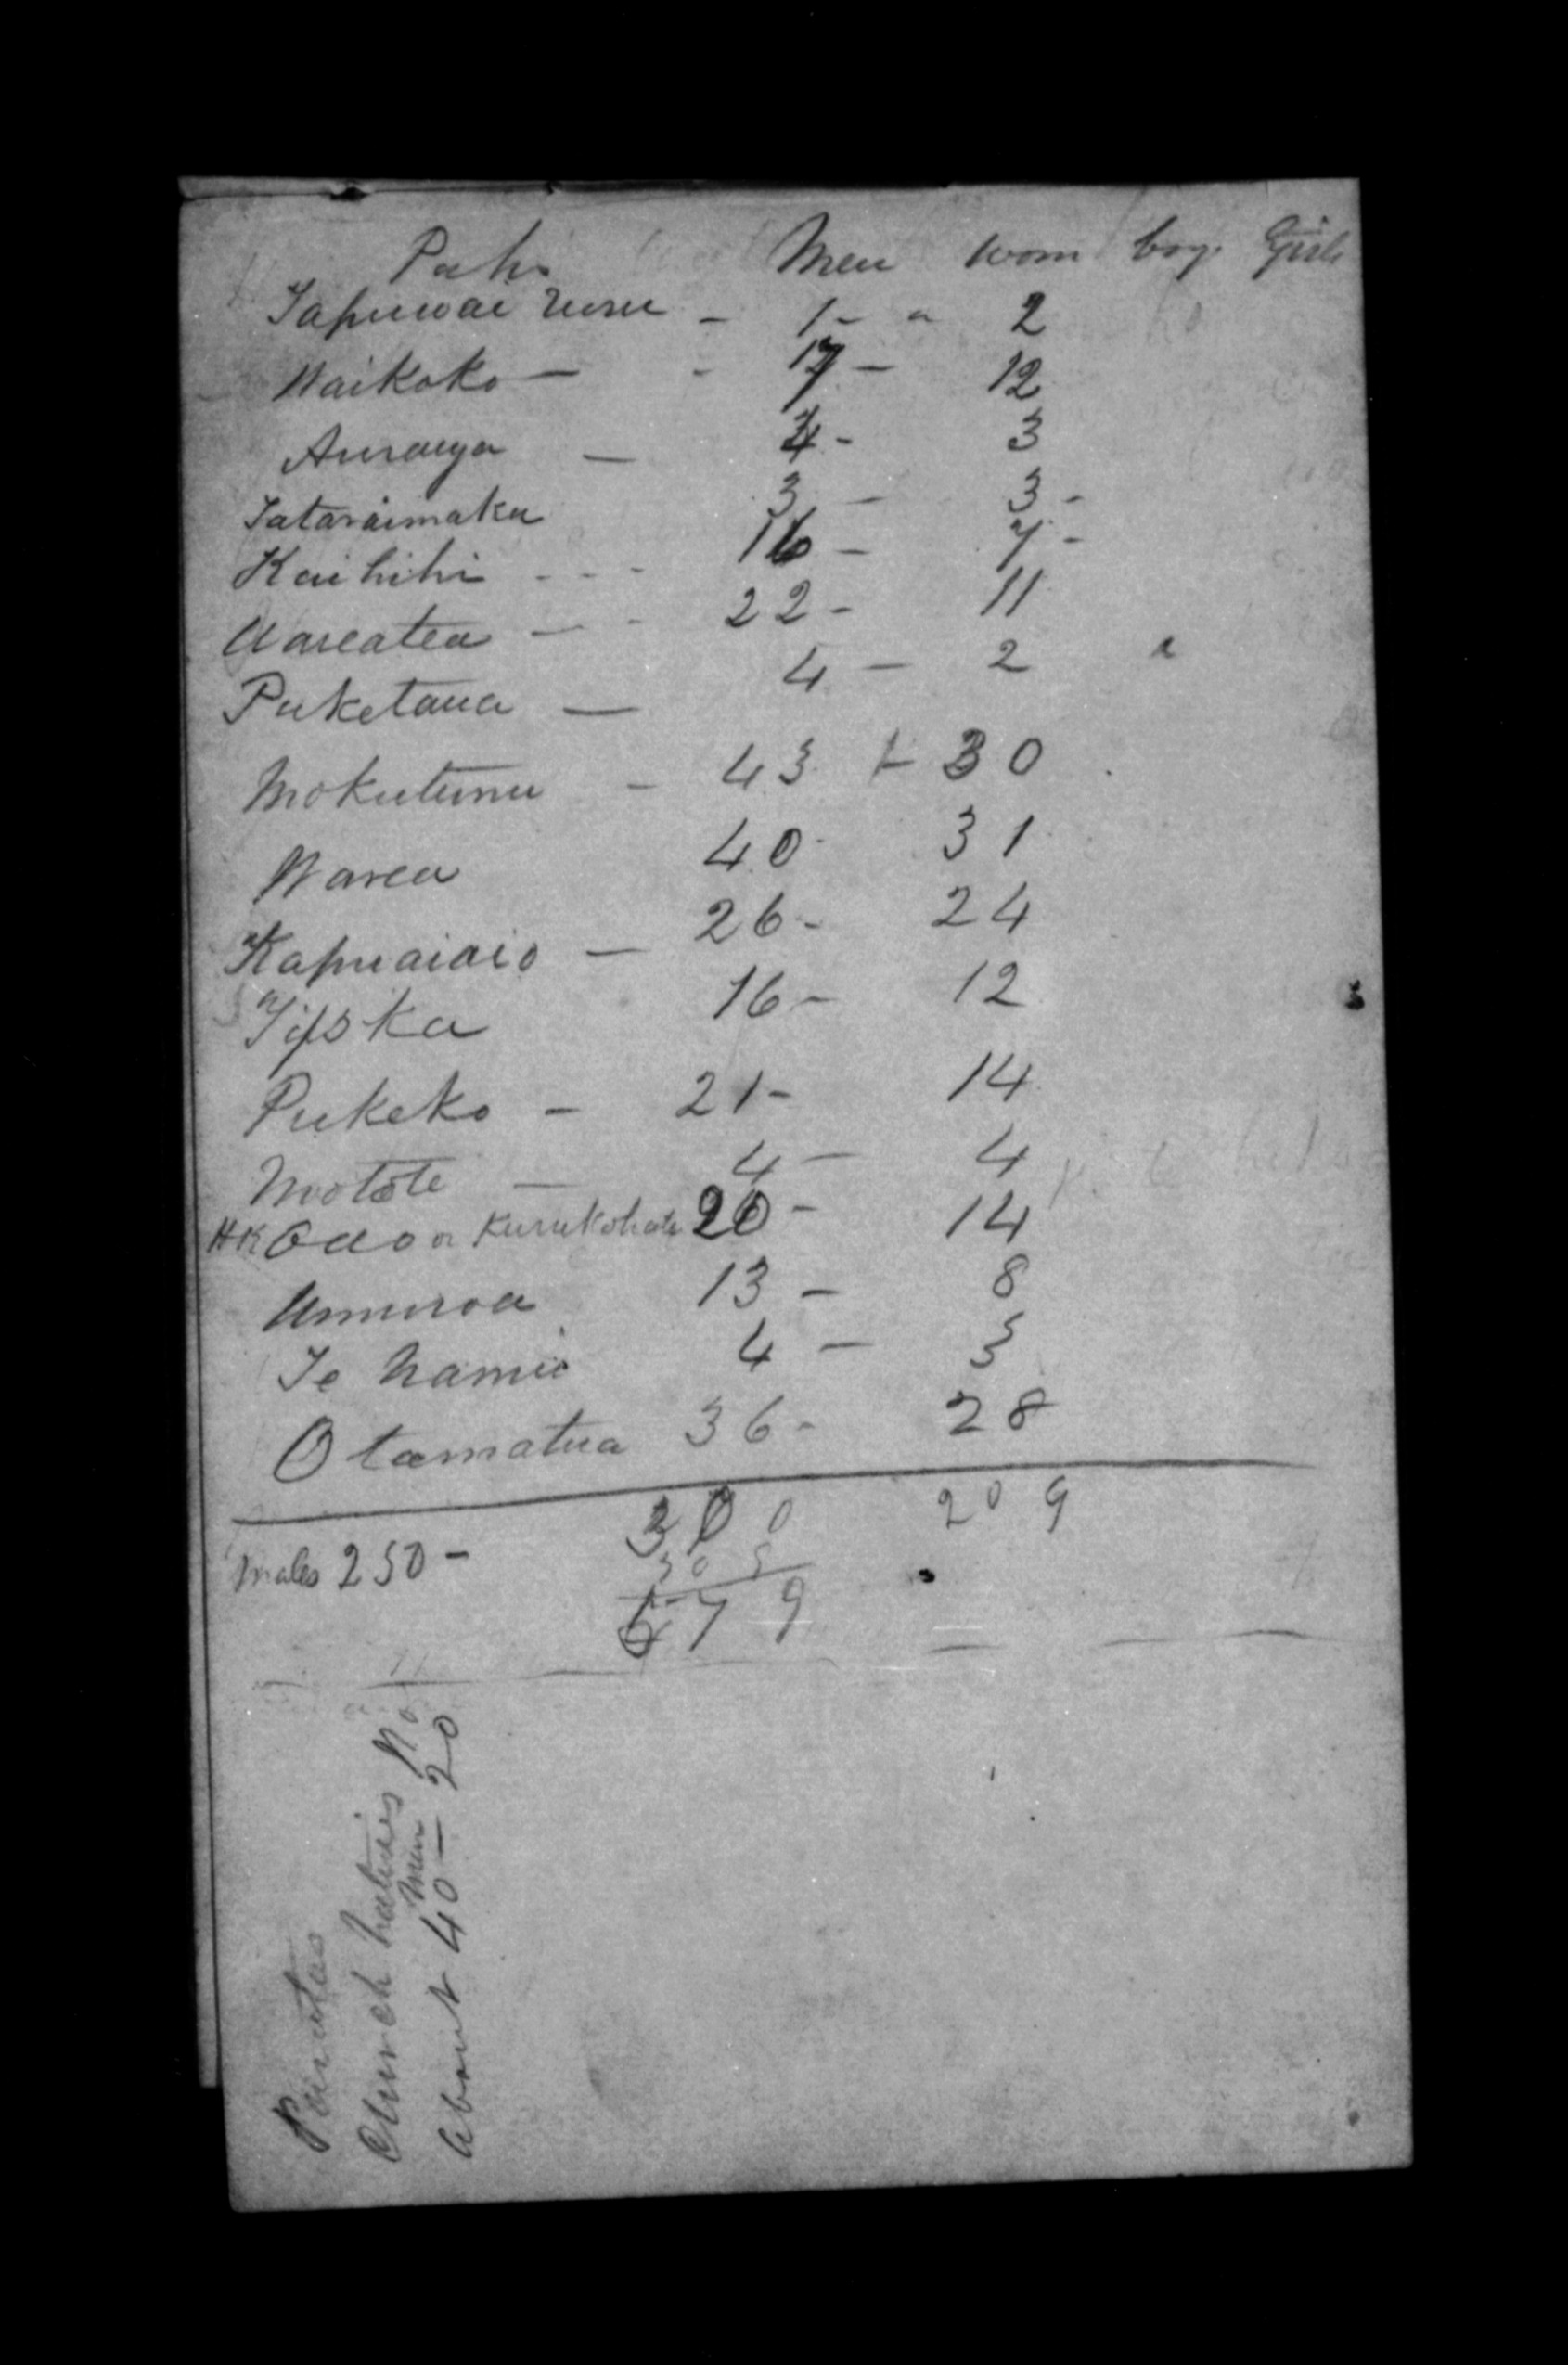 Pahs Men Wom boys Girls
Tapuwae ruru - 1 - " 2
Waikoko - - 17 - 12
Auraya - 4 - 3
Tataraimaka 3 - 3 -
Kaihihi - - - 16 - 7 -
Wareatea - - 22 - 11
Puketaua - 4 - 2
Mokutunu - 43 - 30
Warea 40 31
Kapuaiaio - 26 - 24
Tipoka 16 - 12
Pukeko - 21 - 14
Motote - 4 - 4
HK Oao or Kurukohatu 20 - 14
Umuroa 13 - 8
Te Namu 4 - 3
Otamatua 36 - 28
300 209
Males 250 - 305
579
Paurutas
Church natives No
Men
About 40 - 20